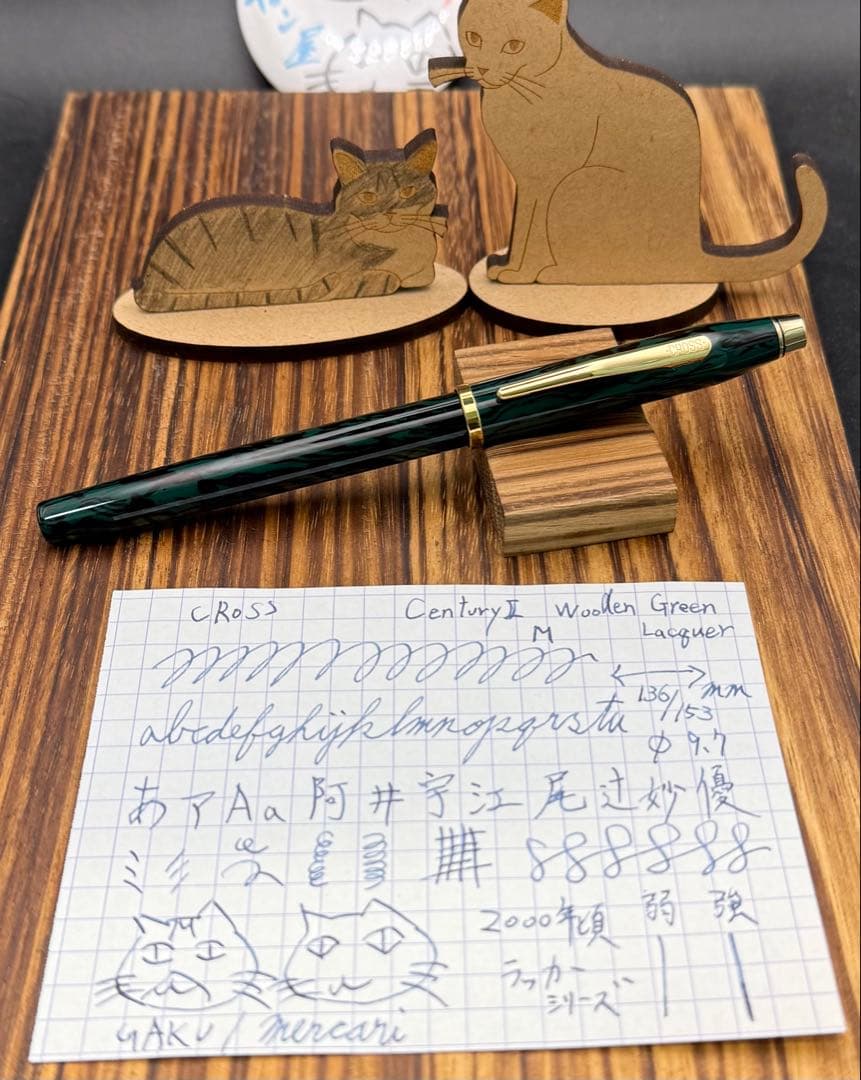 CROSS
CROSS Century II Wooden Green
M Lacquer
136/153 mm
abcdefghijklmnopqrstu
φ 9.7
あ ア A a 阿 井 宇 江 尾 辻 妙 優
2000年頃 弱 強
ラッカー
シリーズ
GAKU / mercari